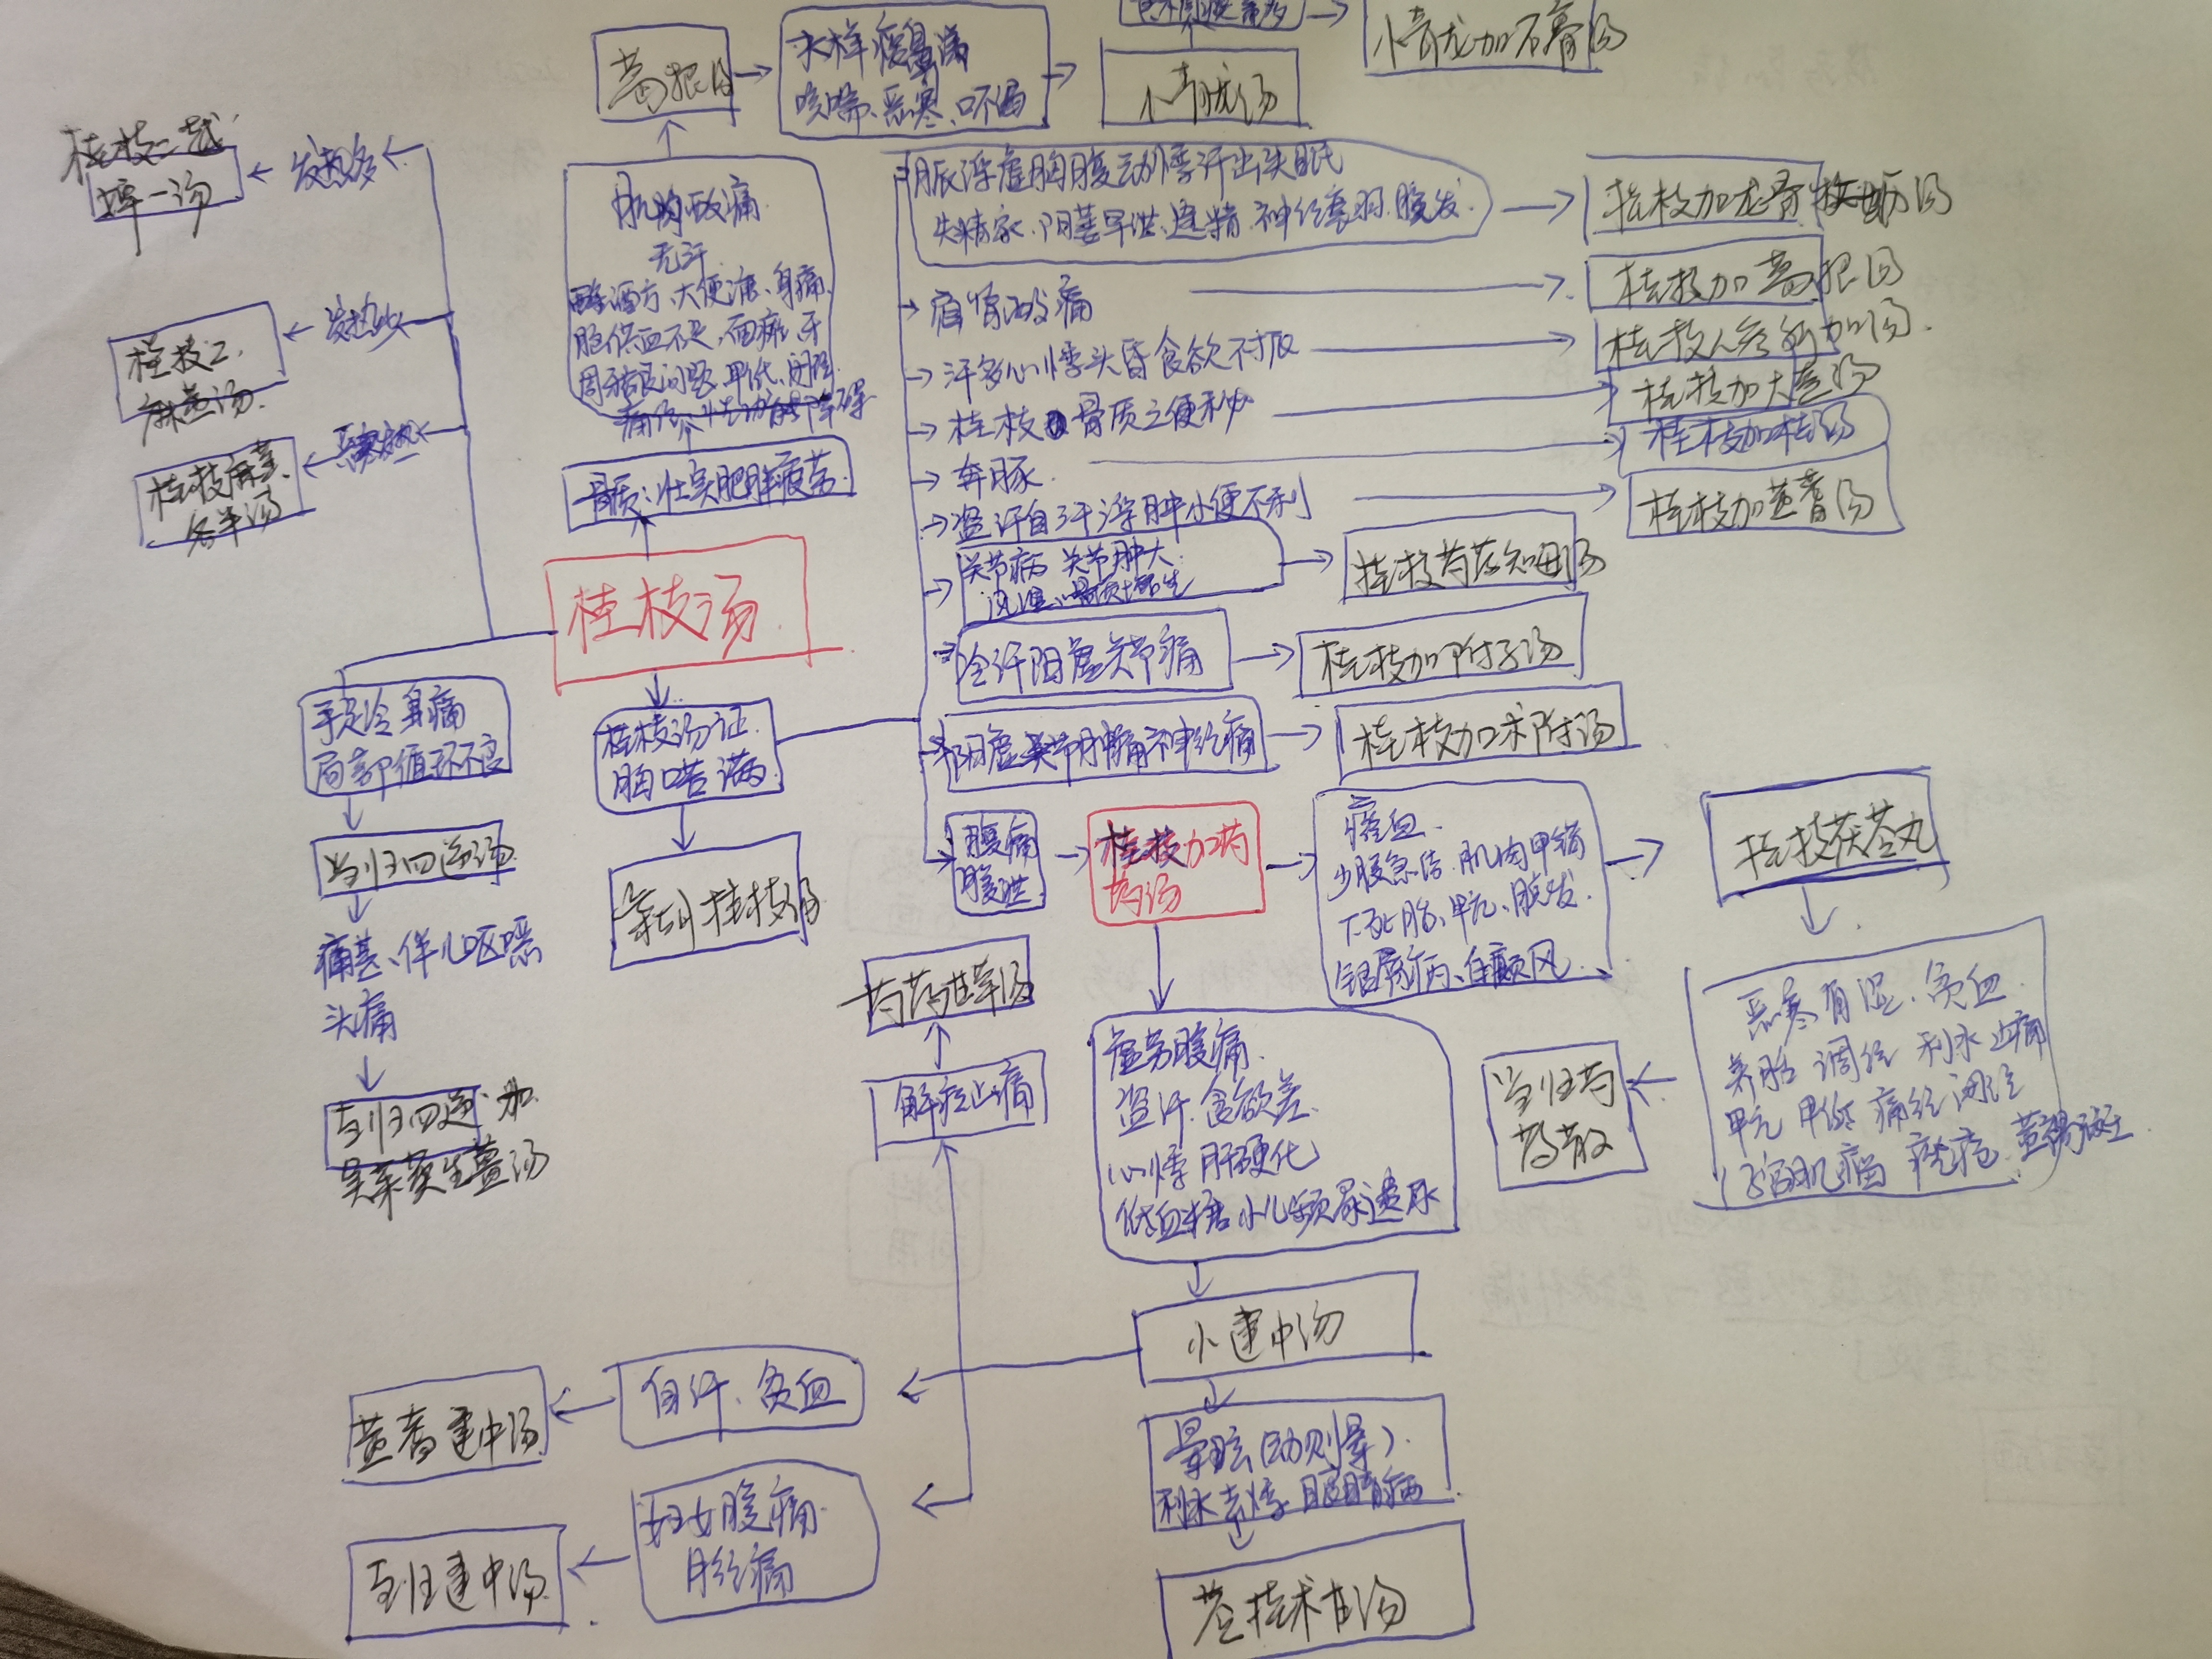 小青龙加石膏汤
葛根汤
水样痰鼻涕
咳喘、恶寒、口不渴
小青龙汤
桂枝二越
婢一汤
发热多
桂枝二
麻黄汤
发热少
桂枝麻黄
各半汤
肌肉酸痛
无汗
大便溏、身痛
脑供血不足、面瘫、牙
周
骨质:壮实肥胖疲劳
桂枝汤
脉浮虚胸腹动悸汗出失眠
失精家、阳萎早泄、遗精、神经衰弱、脱发
桂枝加龙骨牡蛎汤
肩背酸痛
桂枝加葛根汤
汗多心悸头昏食欲不振
桂枝人参新加汤
桂枝骨质之便秘
桂枝加大黄汤
奔豚
桂枝加桂汤
盗汗自汗浮肿小便不利
桂枝加黄耆汤
关节病 关节肿大
桂枝芍药知母汤
冷汗阳虚关节痛
桂枝加附子汤
阳虚关节肿痛神经痛
桂枝加术附汤
手足冷身痛
局部循环不良
当归四逆汤
痛甚、伴心呕恶
头痛
当归四逆加
吴茱萸生薑汤
桂枝汤证
胸苦满
柴胡桂枝汤
腹痛
腹泄
桂枝加芍
药汤
瘀血
少腹急结 肌肉甲错
下死胎、甲亢、脱发
银屑病、白癜风
桂枝茯苓丸
恶寒有湿、贫血
养胎 调经 利水止痛
甲亢 甲低 痛经 闭经
子宫肌瘤 痤疮 黄褐斑
当归芍
药散
芍药甘草汤
解痉止痛
虚劳腹痛
盗汗 食欲差
心悸 肝硬化
低血糖 小儿频尿遗尿
小建中汤
自汗、贫血
黄耆建中汤
妇女腹痛
月经痛
当归建中汤
晕眩(动则晕)
利水去悸 眼睛病
苓桂术甘汤